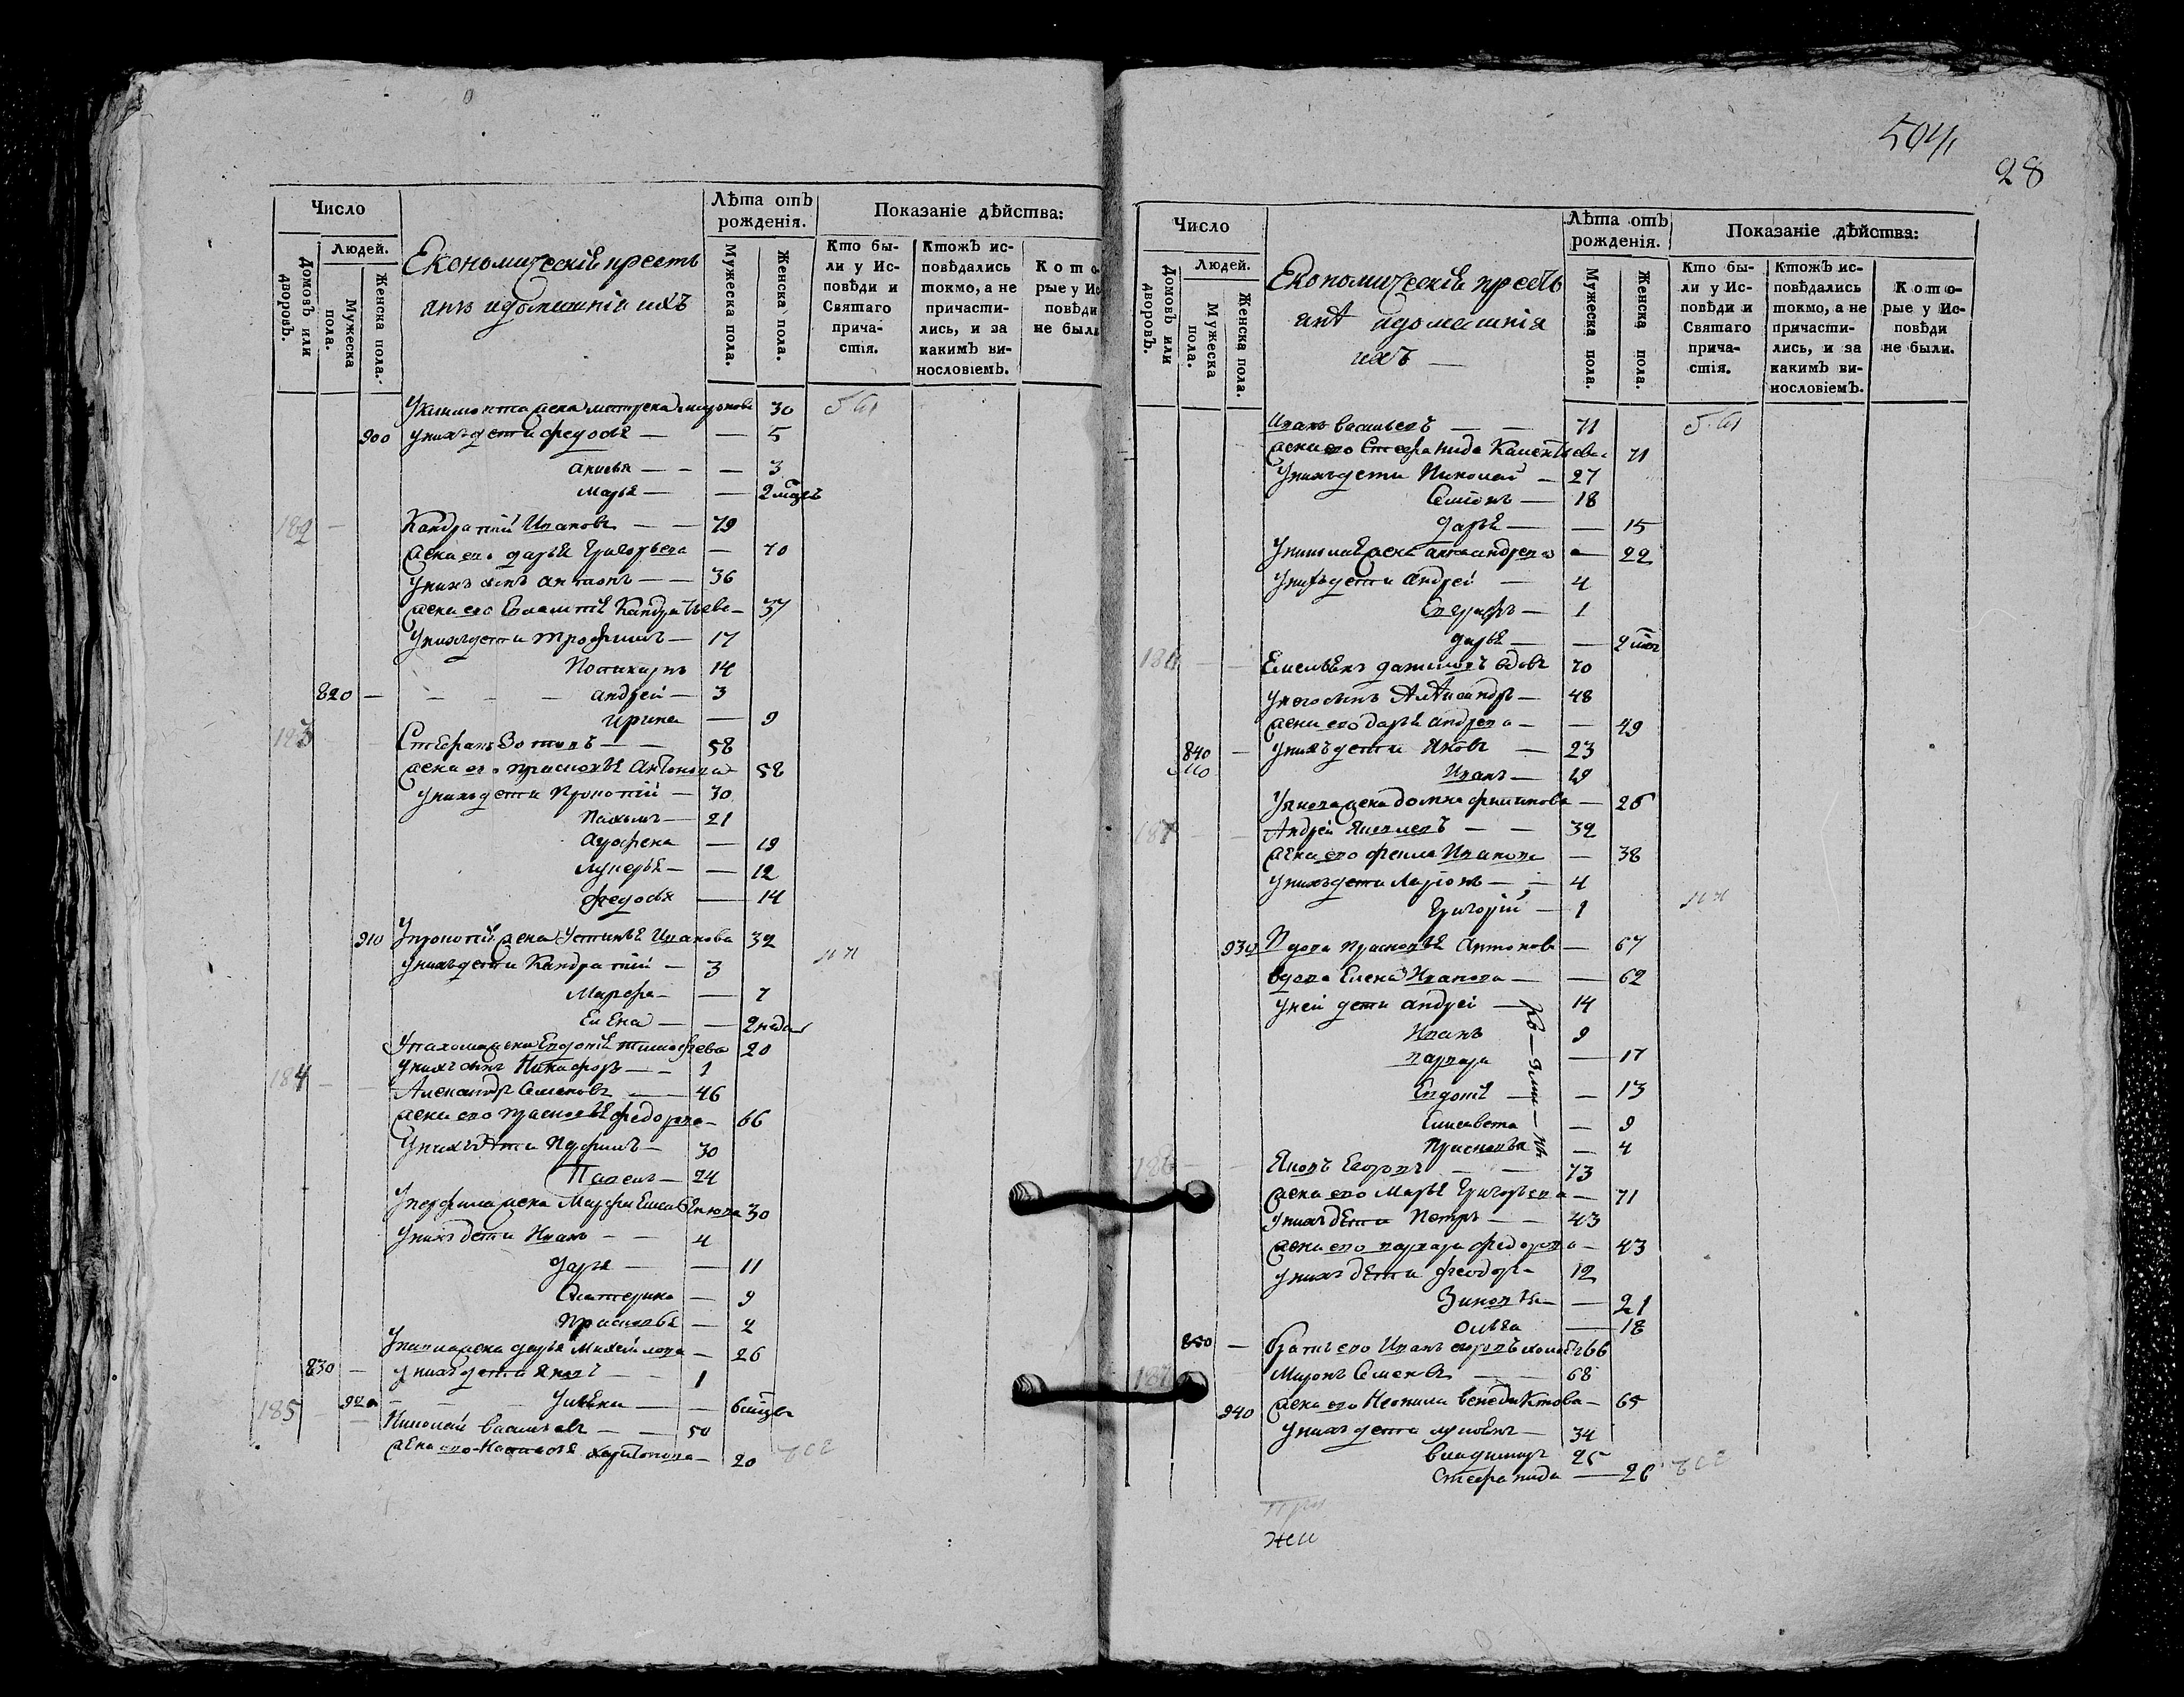 Число
Людей.
Домовъ или дворовъ.
Мужеска пола.
Женска пола.
Економическія крестьянъ и домашнія ихъ
Лѣта отъ рожденія.
Мужеска пола.
Женска пола.
Показаніе дѣйства:
Кто были у Исповѣди и Святаго причастія.
Ктожъ исповѣдались токмо, а не причастились, и за какимъ винословіемъ.
Которые у Исповѣди не были
30
900 у нихъ дети федосья — — 5
анисья — — — 3
марья — — 2 мцъ
182 — Кандратий Ивановъ — — 79
жена его дарья Григорьева — 70
у нихъ сынъ антонъ — — 36
37
у нихъ дети трофимъ — 17
Поликарпъ 14
820 — — — — андрей — 3
Ирина — 9
183 Стефанъ Зотовъ — — 58
жена его прасковья Антонова 58
у нихъ дети Прокопий — 30
Пахомъ — 21
Агрофена — 19
лукерья — — 12
федосья — 14
910 У прокопия жена Устинья Иванова 32
у нихъ дети Кандратий — 3
Марфа — — 7
Елена — — 2 неде
У пахома жена Евдокия тимофеева 20
у нихъ сынъ Никифоръ — — 1
184 — — Александръ Семеновъ — 46
жена его прасковья федорова — 66
У нихъ дети Перфилъ — 30
Павелъ — 24
У перфила жена Марфа 30
У нихъ дети Иванъ — — 4
дарья — — 11
Екатерина — 9
прасковья — 2
У павла жена дарья Михайлова — 26
830 — у нихъ дети Яковъ — — 1
920 — — — — 6 мцъ
185 — Николай Васильевъ — — 50
жена его Настасья Харитонова — 20
504
28
Число
Людей.
Домовъ или дворовъ.
Мужеска пола.
Женска пола.
Економическія крестьянъ и домашнія ихъ —
Лѣта отъ рожденія.
Мужеска пола.
Женска пола.
Показаніе дѣйства:
Кто были у Исповѣди и Святаго причастія.
Ктожъ исповѣдались токмо, а не причастились, и за какимъ винословіемъ.
Которые у Исповѣди не были.
Иванъ Васильевъ — — 71
жена его Стефанида 71
У нихъ дети Николай — 27
Семионъ — 18
дарья — — 15
22
У нихъ дети андрей — 4
Евграфъ — 1
дарья — — 2
Емельянъ даниловъ вдовъ 70
у него сынъ Александръ — 48
жена его дарья андреева — — 49
840 — у нихъ дети Яковъ — 23
Иванъ — 19
У якова жена домна филипова — 26
Андрей Яковлевъ — — 32
жена его фекла Иванова — 38
у нихъ дети Ларионъ — — 4
Григорий — 1
930 Вдова прасковья Антонова — 67
вдова Елена Иванова — — 62
У ней дети андрей — 14
Иванъ 9
варвара — 17
Евдокия — — 13
Елисавета — 9
прасковья — 4
Яковъ Егоровъ — — 73
жена его Марья Григорьева — 71
у нихъ дети Петръ — — 43
жена его варвара федорова — 43
у нихъ дети феодоръ 12
Зиновья — — 21
ольга — 18
850 — братъ его Иванъ егоровъ холостъ 66
Миронъ Семеновъ — 68
940 жена его Неонила Венедиктова — 65
У нихъ дети лукиянъ — 34
Владимиръ 25
Стефанида — 26
жи